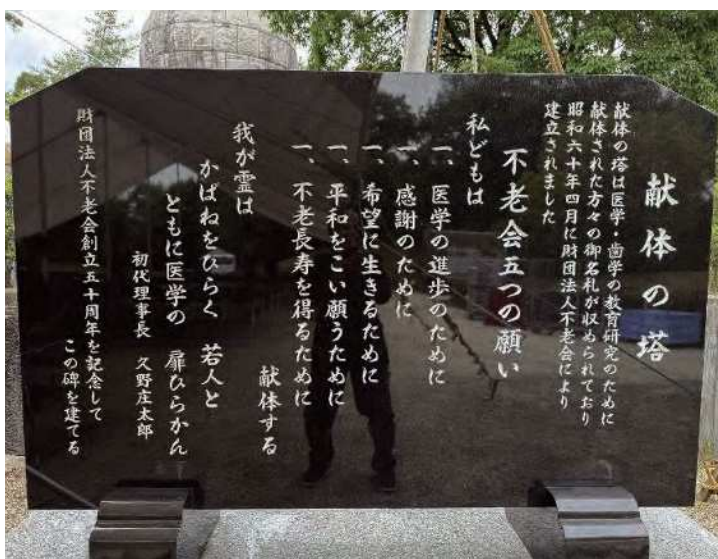 献体の塔
献体の塔は医学・歯学の教育研究のために
献体された方々の御名札が収められており
昭和六十年四月に財団法人不老会により
建立されました
不老会五つの願い
私どもは
一、医学の進歩のために
一、感謝のために
一、希望に生きるために
一、平和をこい願うために
一、不老長寿を得るために
献体する
我が霊は
かばねをひらく 若人と
ともに医学の 扉ひらかん
初代理事長 久野庄太郎
財団法人不老会創立五十周年を記念して
この碑を建てる